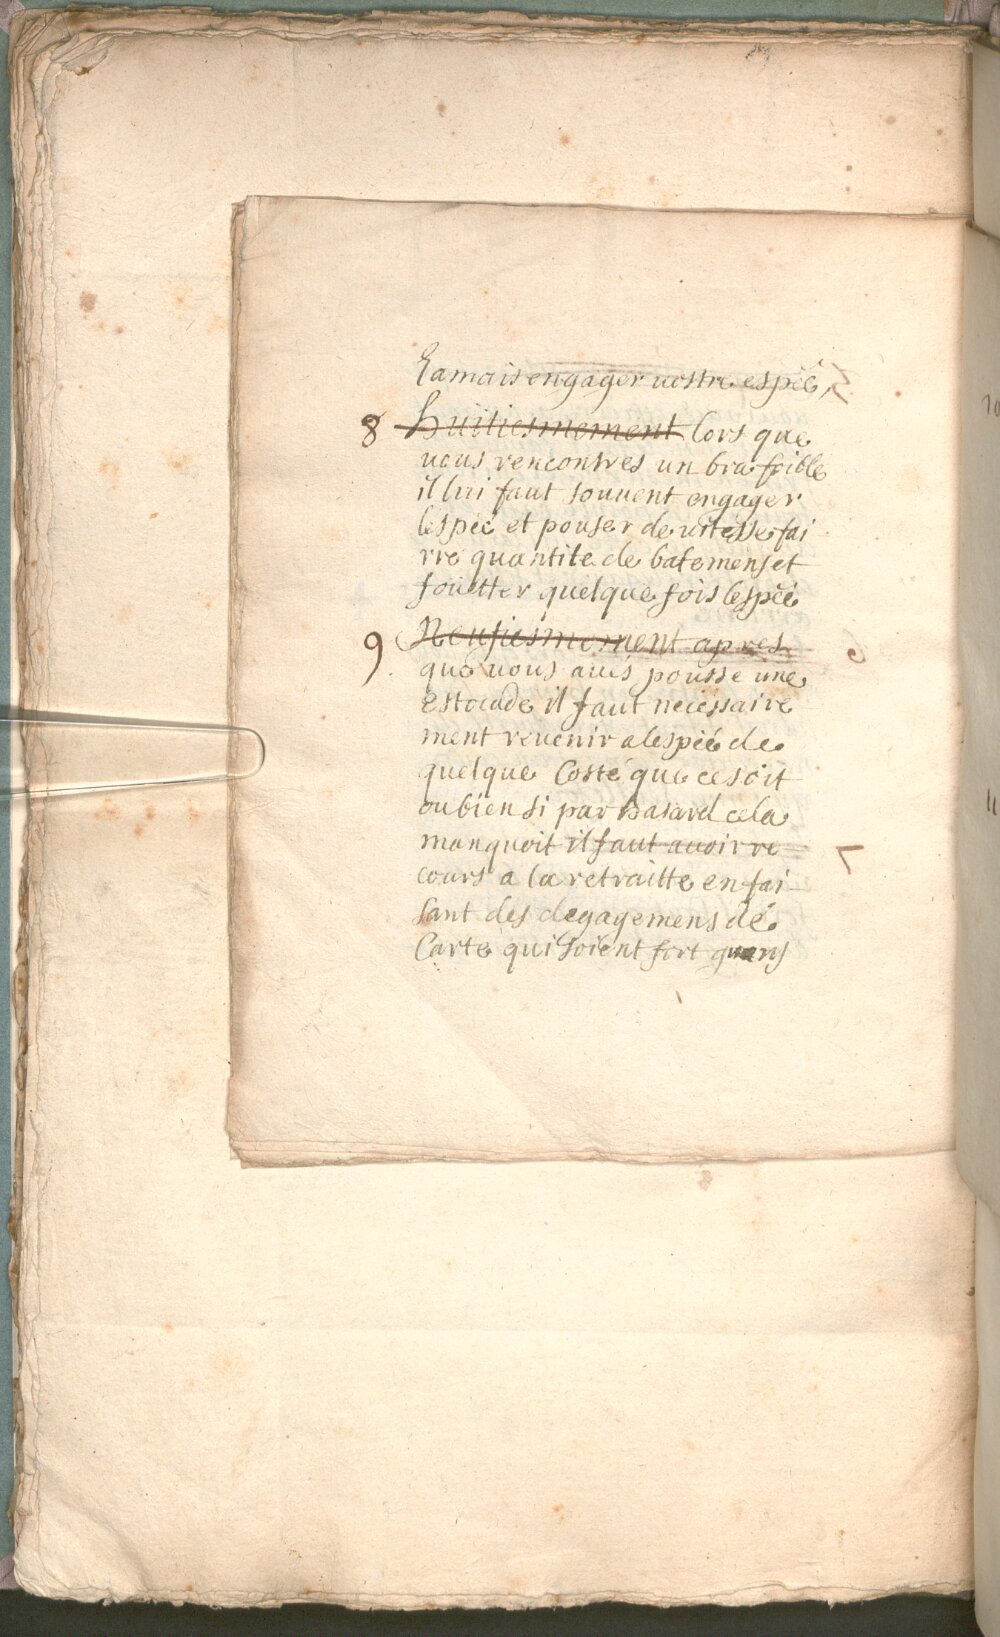 Iamais engager vostre espée,
8 huitiesmement lors que
vous rencontres un bra foible
il lui faut souvent engager
lespée et pouser de vitesse fai
rre quantite de batemens et
fouëtter quelque fois lespée
9 Neufiesmement apres
que vous avés pousse une
estocade il faut necessaire
ment revenir a lespée de
quelque Costé que ce soit
ou bien si par hasard cela
manquoit il faut avoir re
cours a la retraitte en fai
sant des degagemens de
Carte qui soient fort
10
11